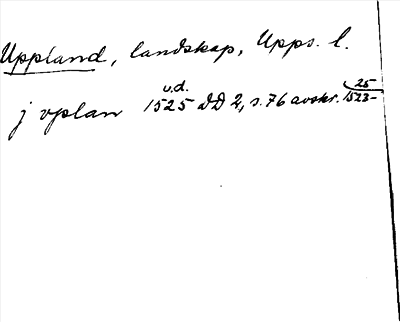 Uppland, landskap, Upps. l.
j vplan 1525 u.d. DD 2, s. 76 avskr. 1523–25